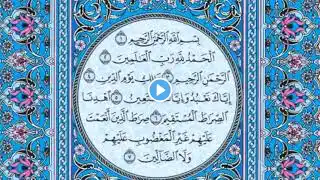 بِسْمِ اللَّهِ الرَّحْمَٰنِ الرَّحِيمِ ١
الْحَمْدُ لِلَّهِ رَبِّ الْعَالَمِينَ ٢
الرَّحْمَٰنِ الرَّحِيمِ ٣ يَوْمِ الدِّينِ ٤
إِيَّاكَ نَعْبُدُ وَإِيَّاكَ نَسْتَعِينُ ٥ اهْدِنَا
الصِّرَاطَ الْمُسْتَقِيمَ ٦ صِرَاطَ الَّذِينَ أَنْعَمْتَ
عَلَيْهِمْ غَيْرِ الْمَغْضُوبِ عَلَيْهِمْ
وَلَا الضَّالِّينَ ٧